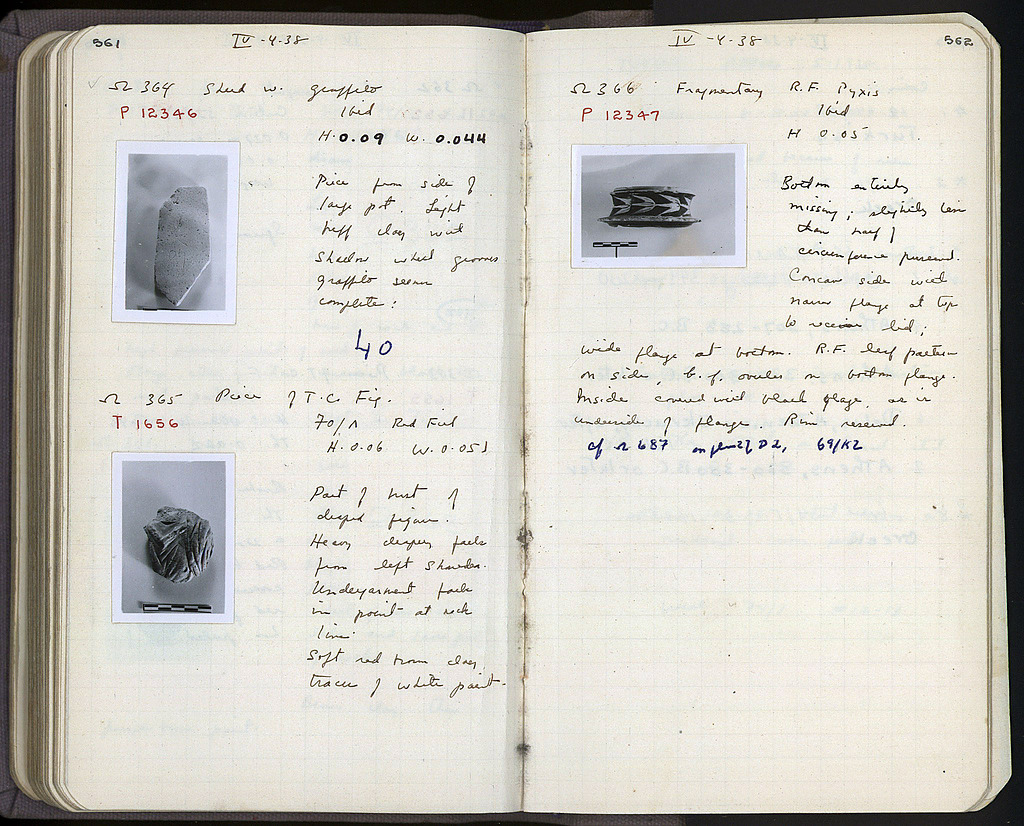 561
IV-4-38
Ω 364 Sherd w. graffito
P 12346
Ibid
H. 0.09 W. 0.044
Piece from side of
large pot. Light
buff clay with
shallow wheel grooves
graffito seems
complete:
40
Ω 365 Piece of T.C. Fig.
T 1656
70/Λ Red Fill
H. 0.06 W. 0.053
Part of bust of
draped figure.
Heavy drapery falls
from left shoulder.
Undergarment falls
in point at neck
line.
Soft red brown clay,
traces of white paint.
IV-4-38
562
Ω 366 Fragmentary R.F. Pyxis
P 12347
Ibid
H 0.05
Bottom entirely
missing; slightly less
than half of
circumference preserved.
Concave side with
narrow flange at top
to receive lid;
wide flange at bottom. R.F. leaf pattern
on side, b.f. ovules on bottom flange.
Inside covered with black glaze, as is
underside of flange. Rim reserved.
cf Ω 687 69/KZ